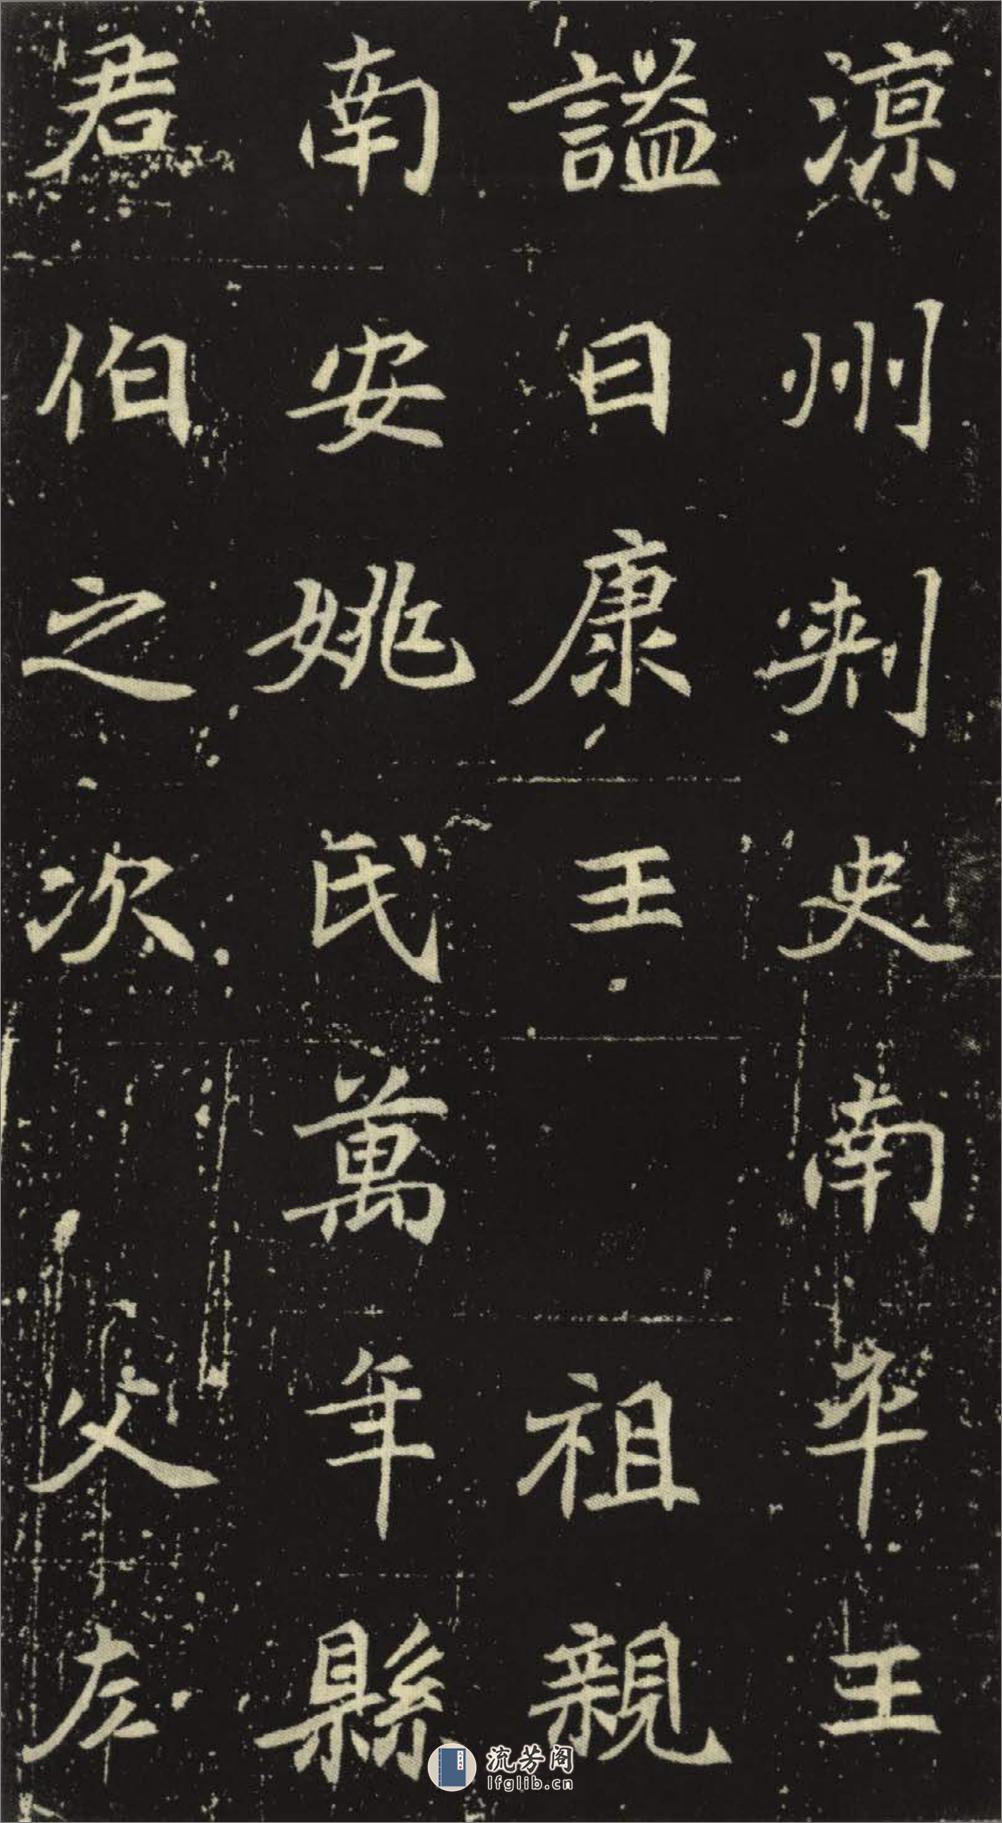 涼州刺史南平王
謚曰康王祖親
南安姚氏萬年縣
君伯之次父左
流芳阁
lfglib.cn